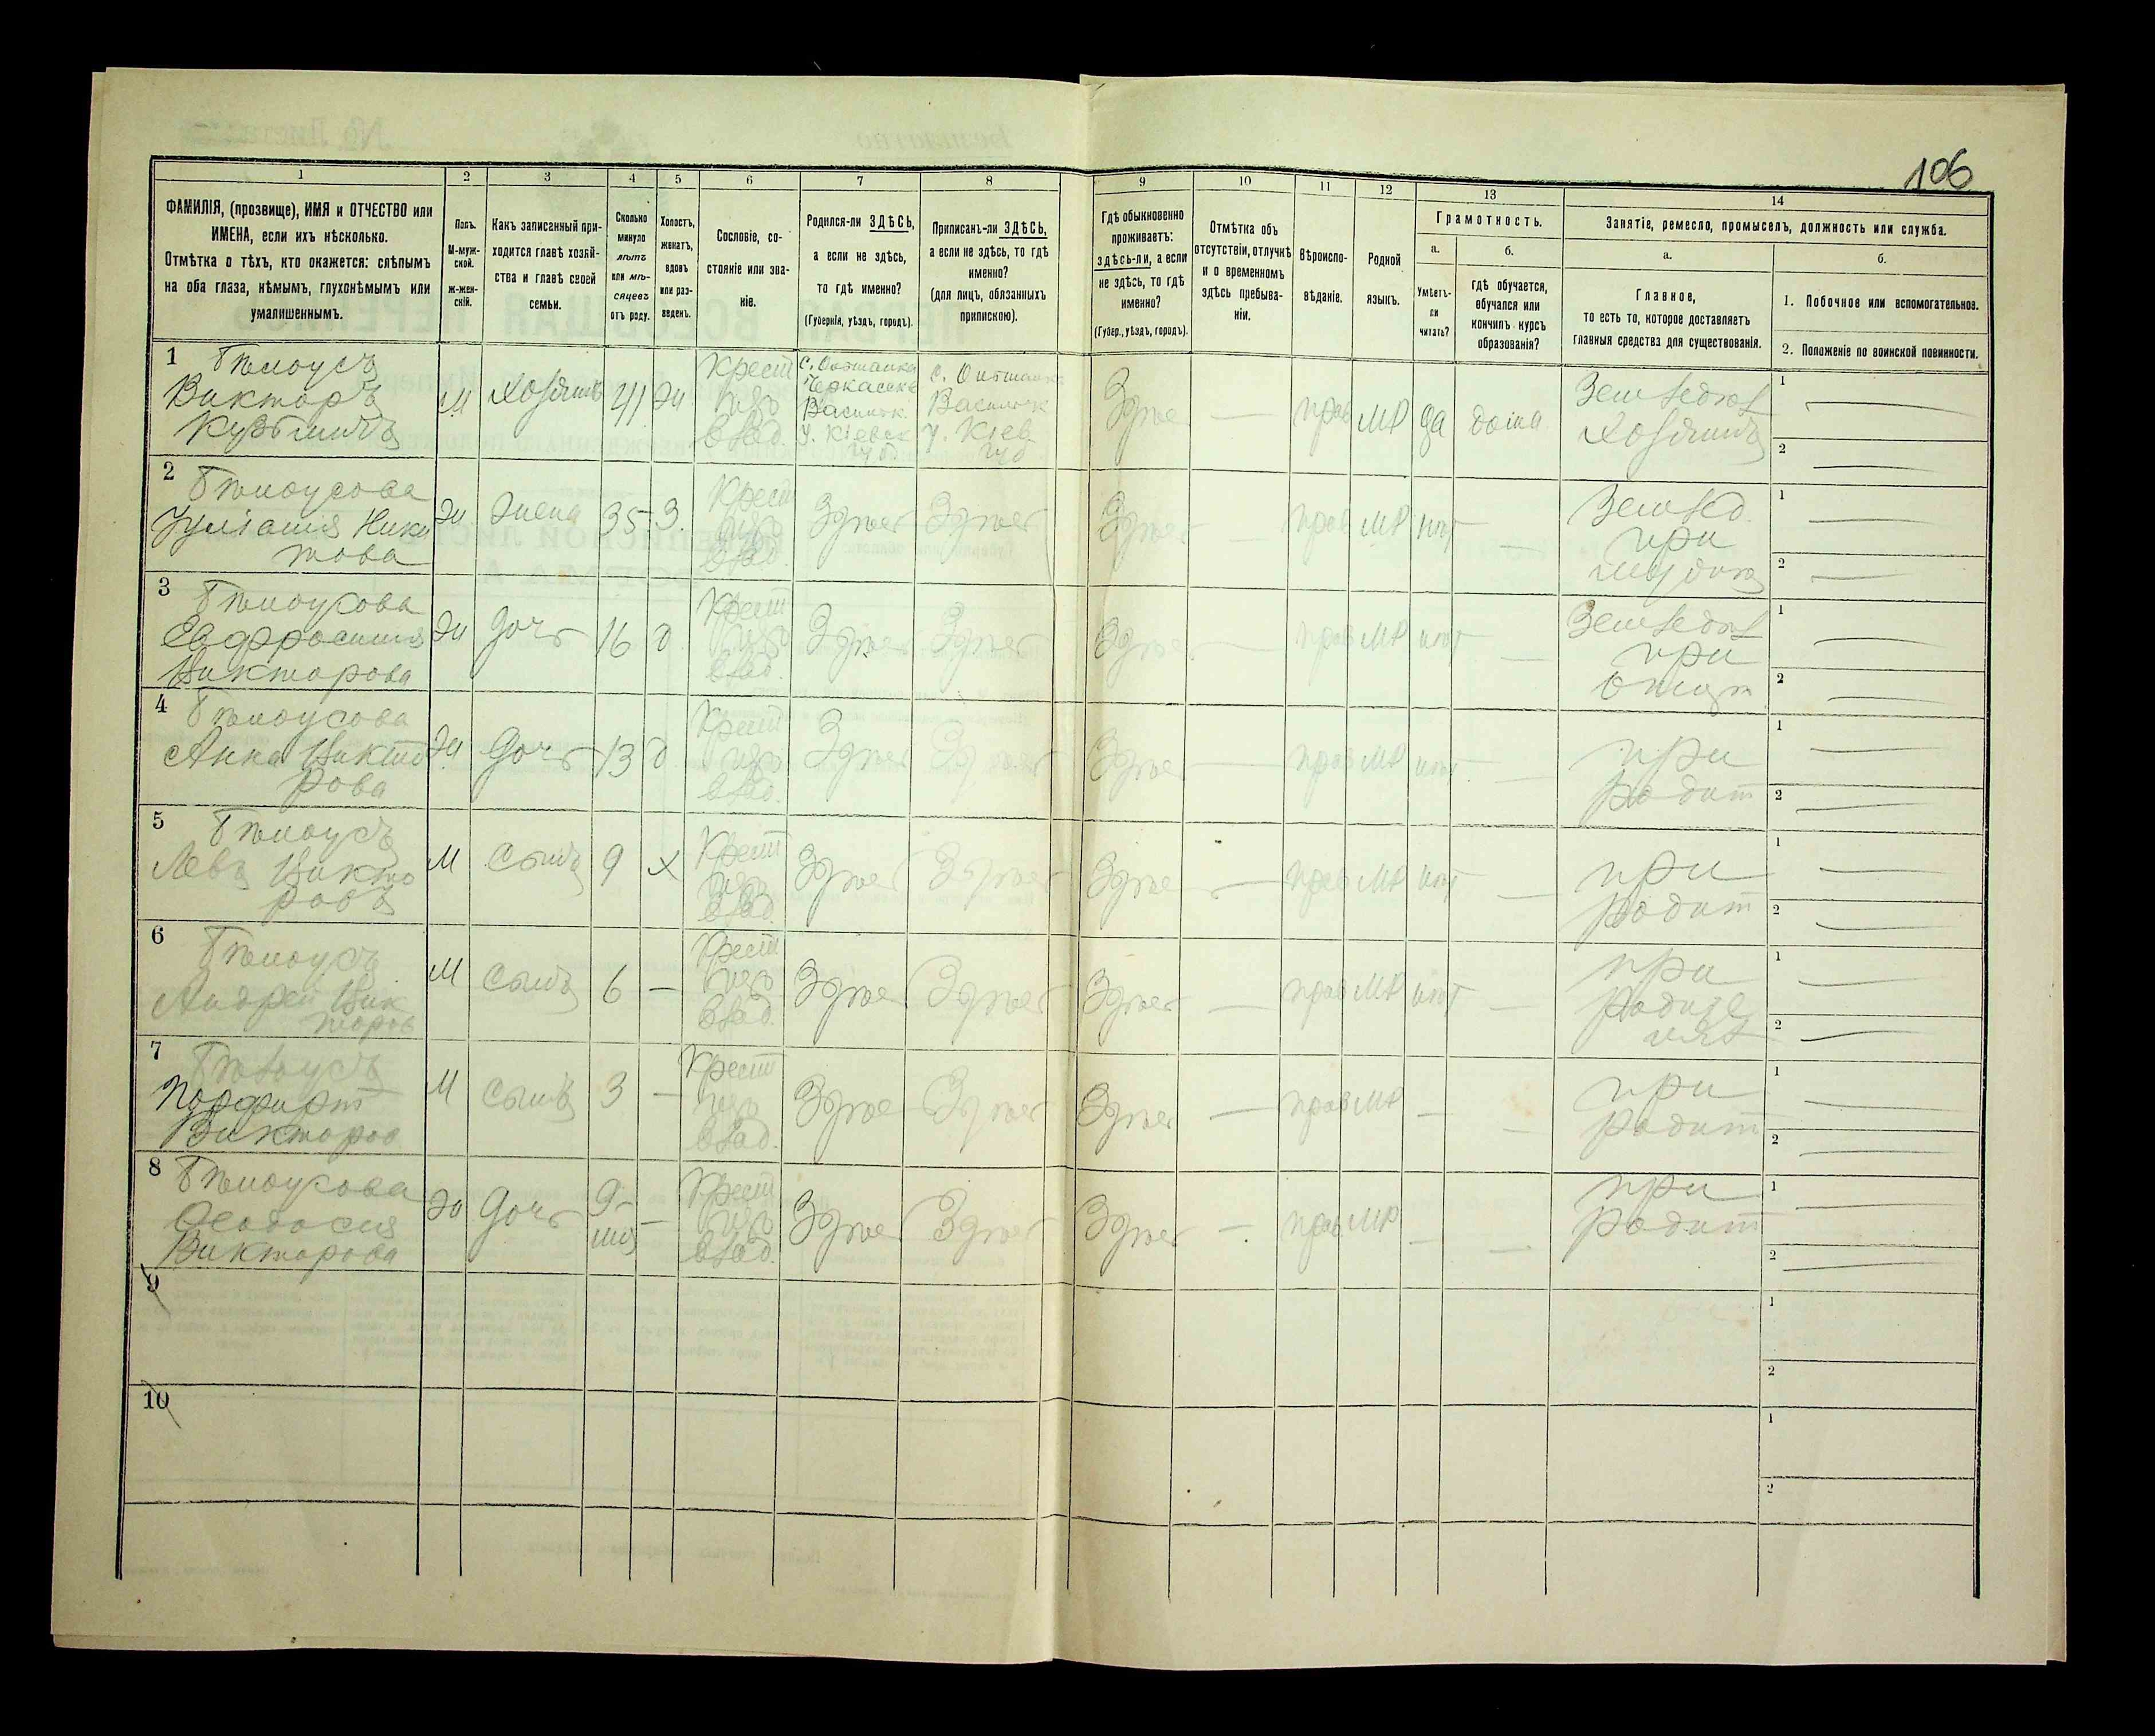 106
1 2 3 4 5 6 7 8 9 10 11 12 13 14
ФАМИЛІЯ, (прозвище), ИМЯ и ОТЧЕСТВО или
ИМЕНА, если ихъ нѣсколько.
Отмѣтка о тѣхъ, кто окажется: слѣпымъ
на оба глаза, нѣмымъ, глухонѣмымъ или
умалишеннымъ.
Полъ.
М-муж-
ской.
ж-жен-
скій.
Какъ записанный при-
ходится главѣ хозяй-
ства и главѣ своей
семьи.
Сколько
минуло
лѣтъ
или мѣ-
сяцевъ
отъ роду.
Холостъ,
женатъ,
вдовъ
или раз-
веденъ.
Сословіе, со-
стояніе или зва-
ніе.
Родился-ли ЗДѢСЬ,
а если не здѣсь,
то гдѣ именно?
(Губернія, уѣздъ, городъ).
Приписанъ-ли ЗДѢСЬ,
а если не здѣсь, то гдѣ
именно?
(для лицъ, обязанныхъ
припискою).
Гдѣ обыкновенно
проживаетъ:
здѣсь-ли, а если
не здѣсь, то гдѣ
именно?
(Губер., уѣздъ, городъ).
Отмѣтка объ
отсутствіи, отлучкѣ
и о временномъ
здѣсь пребыва-
ніи.
Вѣроиспо-
вѣданіе.
Родной
языкъ.
Грамотность.
а.
Умѣетъ-
ли
читать?
б.
гдѣ обучается,
обучался или
кончилъ курсъ
образованія?
Занятіе, ремесло, промыселъ, должность или служба.
а.
Главное,
то есть то, которое доставляетъ
главныя средства для существованія.
б.
1. Побочное или вспомогательное.
2. Положеніе по воинской повинности.
1 Бѣлоусъ
Викторъ
Кузьмичъ
М
Хозяинъ
41
Ж
Крест
влад.
Василък.
у. Кіевск
губ
Василък
у. Кіев.
губ
Здѣс
—
прав
МР
да
дома
Земледѣл
Хозяинъ
1 —
2 —
2 Бѣлоусова
Іуліанія Ники
това
Ж
Жена
35
З.
Крест
влад.
Здѣсь
Здѣсь
Здѣсь
—
прав
МР
нѣт
—
Землед.
при
1 —
2 —
3 Бѣлоусова
Евфросинія
Викторова
Ж
Дочь
16
Д
Крест
влад.
Здѣсь
Здѣсь
Здѣсь
—
прав
МР
нѣт
—
Земледѣл
при
отцѣ
1 —
2 —
4 Бѣлоусова
Анна Викто
рова
Ж
Дочь
13
Д
Крест
влад.
Здѣсь
Здѣсь
Здѣсь
—
прав
МР
нѣт
—
при
родит
1 —
2 —
5 Бѣлоусъ
Левъ Викто
ровъ
М
Сынъ
9
Х
Крест
влад.
Здѣсь
Здѣсь
Здѣс
—
прав
МР
нѣт
—
при
родит
1 —
2 —
6 Бѣлоусъ
Андрей Вик
торов
М
Сынъ
6
—
Крест
влад.
Здѣсь
Здѣсь
Здѣсь
—
прав
МР
нѣт
—
при
родите
лях
1 —
2 —
7 Бѣлоусъ
Порфирій
Викторов
М
Сынъ
3
—
Крест
влад.
Здѣс
Здѣсь
Здѣсь
—
прав
МР
—
—
при
родит
1 —
2 —
8 Бѣлоусова
Феодосия
Викторова
Ж
Дочь
9-
мѣс
—
Крест
влад.
Здѣсь
Здѣсь
Здѣсь
—
прав
МР
—
—
при
родит
1 —
2 —
9
1
2
10
1
2